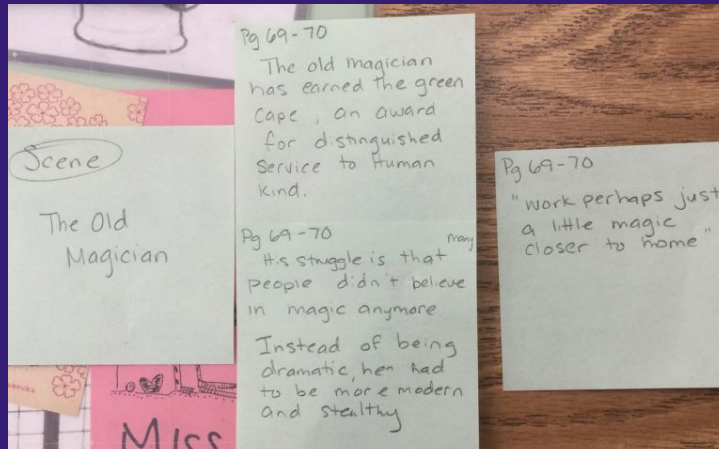 Scene
The Old
Magician
Pg 69-70
The old magician
has earned the green
cape, an award
for distinguished
service to Human
kind.
Pg 69-70
many
His struggle is that
people didn't believe
in magic anymore.
Instead of being
dramatic, her had
to be more modern
and stealthy
Pg 69-70
"work perhaps just
a little magic
closer to home"
MISS